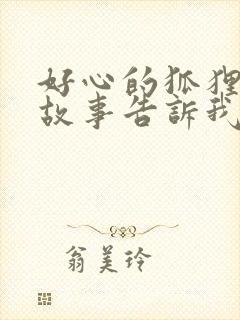 好心的狐狸
故事告訴我
翁美玲